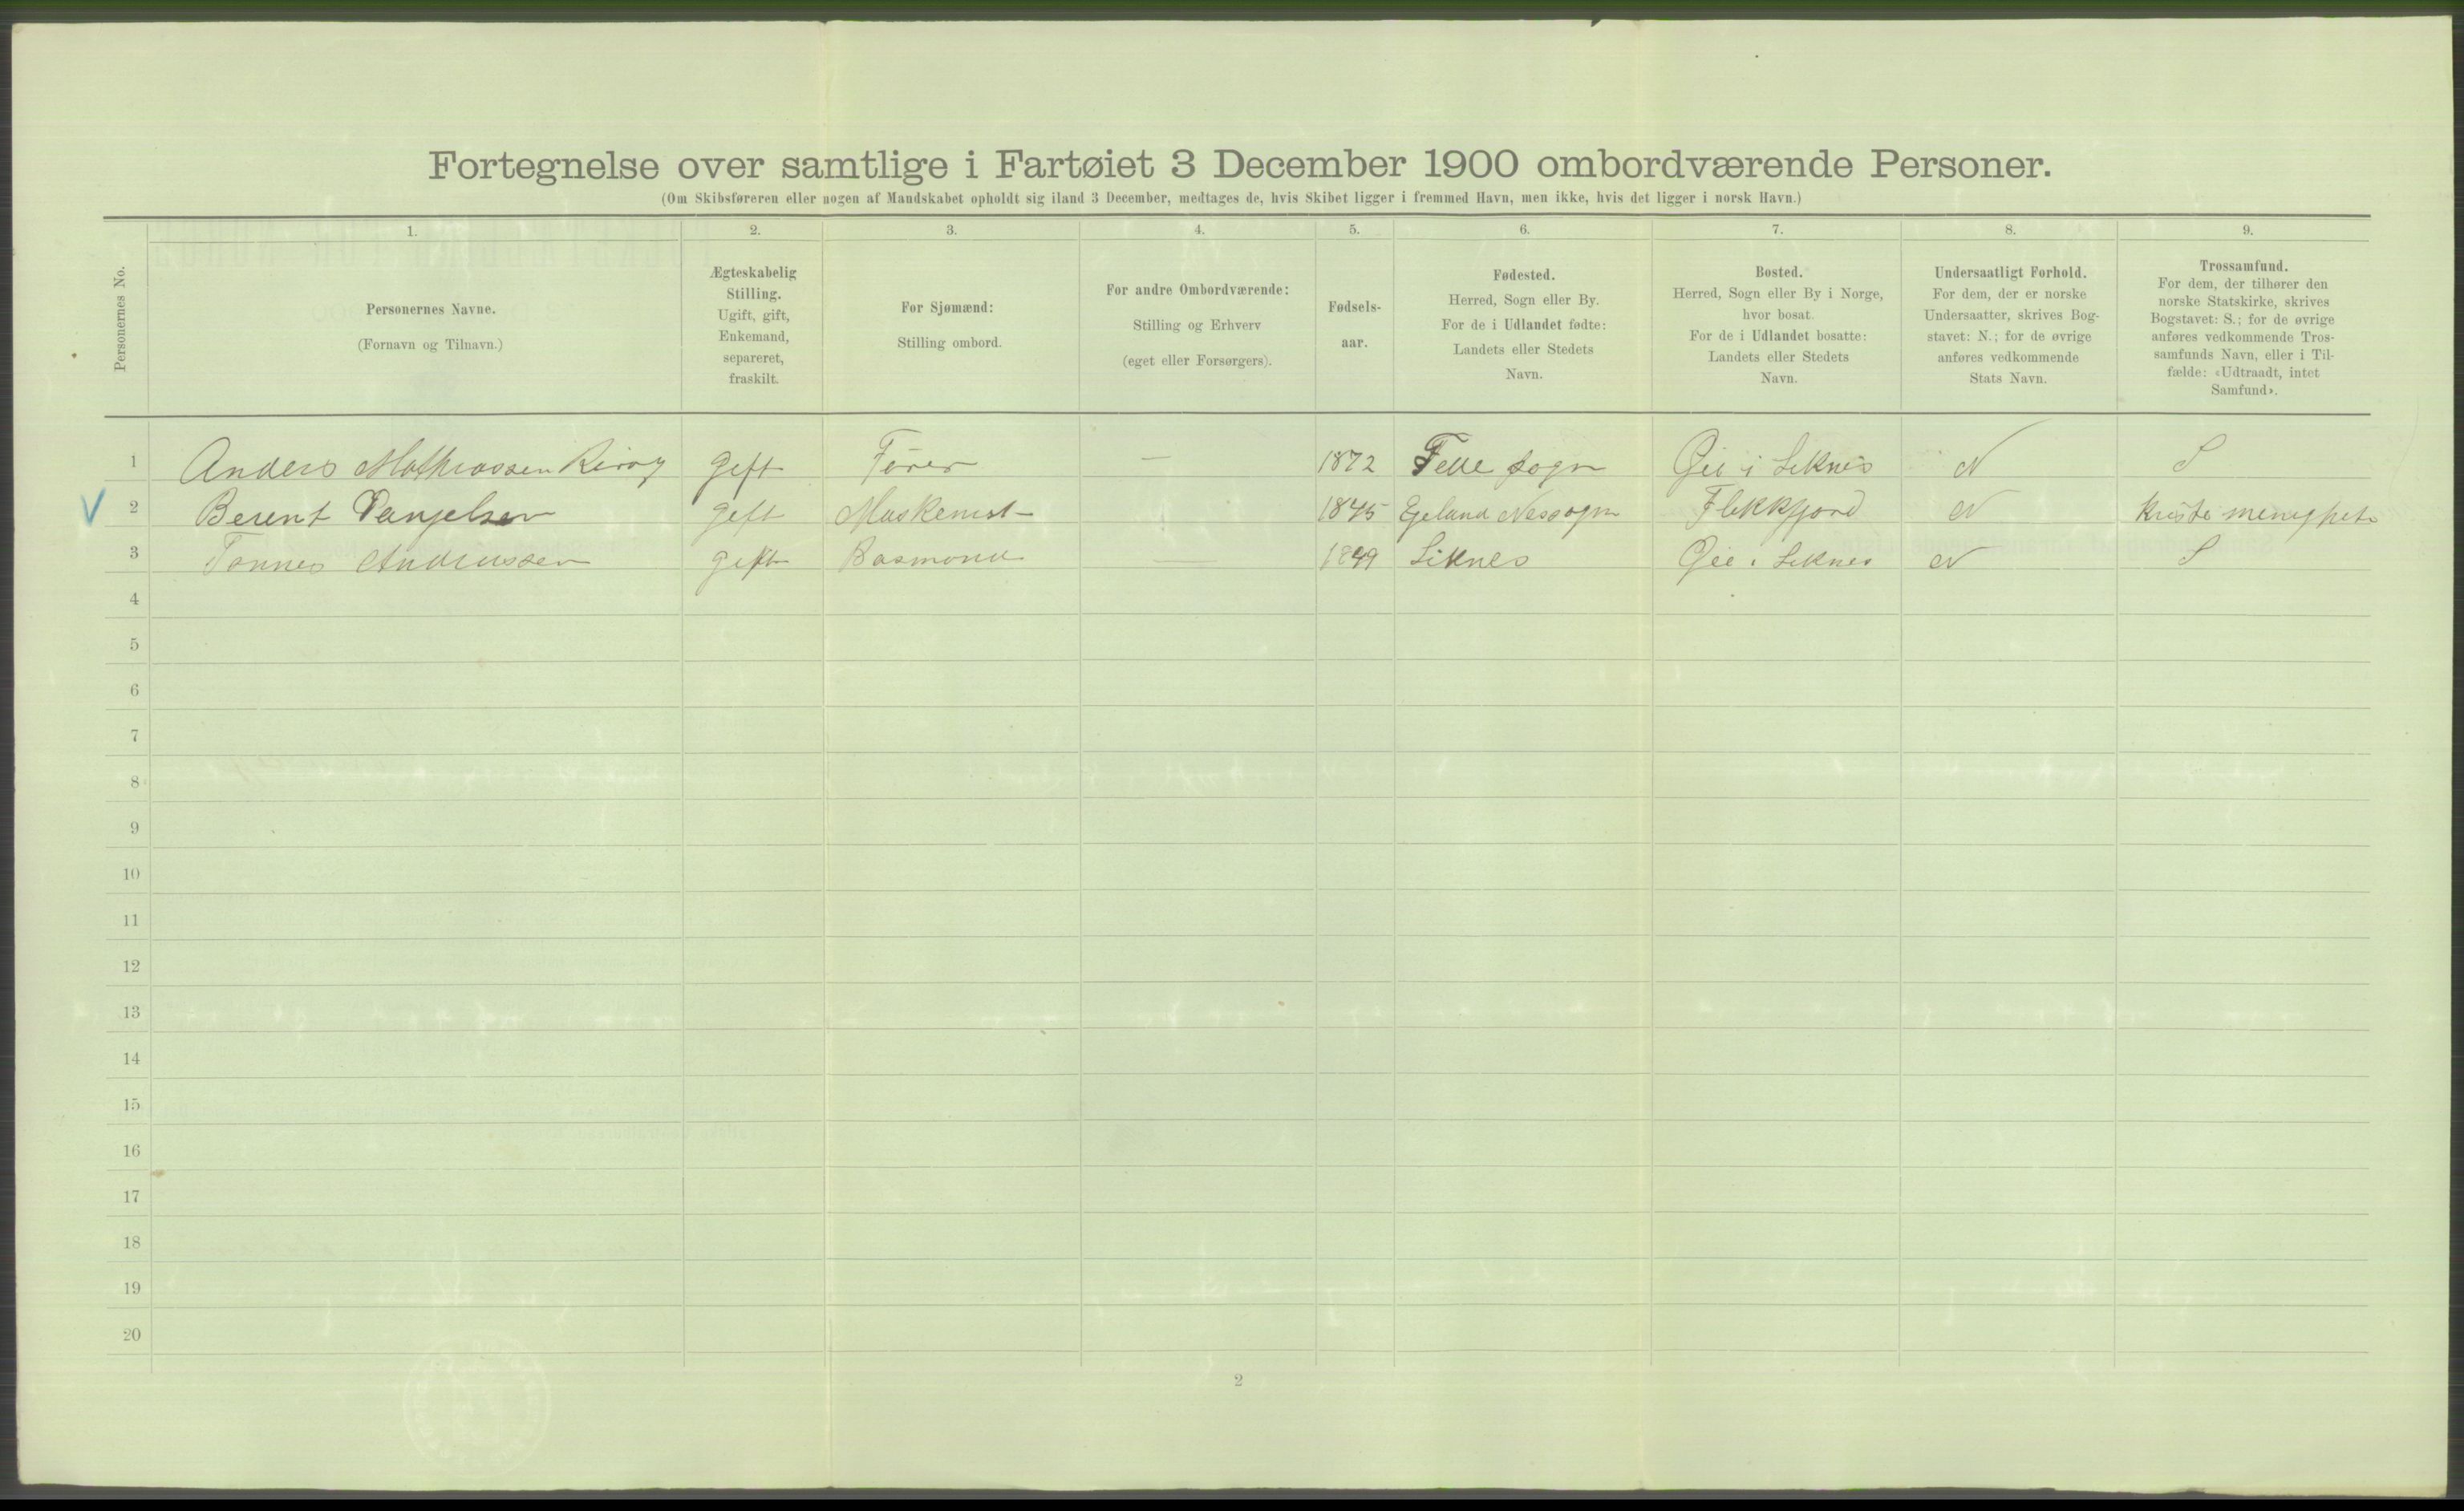 Fortegnelse over samtlige i Fartøiet 3 December 1900 ombordværende Personer.
(Om Skibsføreren eller nogen af Mandskabet opholdt sig iland 3 December, medtages de, hvis Skibet ligger i fremmed Havn, men ikke, hvis det ligger i norsk Havn.)
Personernes No.
1.
Personernes Navne.
(Fornavn og Tilnavn.)
2.
Ægteskabelig
Stilling.
Ugift, gift,
Enkemand,
separeret,
fraskilt.
3.
For Sjømænd:
Stilling ombord.
4.
For andre Ombordværende:
Stilling og Erhverv
(eget eller Forsørgers).
5.
Fødsels-
aar.
6.
Fødested.
Herred, Sogn eller By.
For de i Udlandet fødte:
Landets eller Stedets
Navn.
7.
Bosted.
Herred, Sogn eller By i Norge,
hvor bosat.
For de i Udlandet bosatte:
Landets eller Stedets
Navn.
8.
Undersaatligt Forhold.
For dem, der er norske
Undersaatter, skrives Bog-
stavet: N.; for de øvrige
anføres vedkommende
Stats Navn.
9.
Trossamfund.
For dem, der tilhører den
norske Statskirke, skrives
Bogstavet: S.; for de øvrige
anføres vedkommende Tros-
samfunds Navn, eller i Til-
fælde: «Udtraadt, intet
Samfund».
1 Anders Mathiassen gift Fører — 1872 Felle sogn Øie i Liknes N S
V 2 Berent Danjelsen gift Maskenist 1845 Egeland Nessogn Flekkfjord N Kriste menighet
3 Tønnes Andreassen gift Basmand — 1849 Liknes Øie i Liknes N S
4
5
6
7
8
9
10
11
12
13
14
15
16
17
18
19
20
2